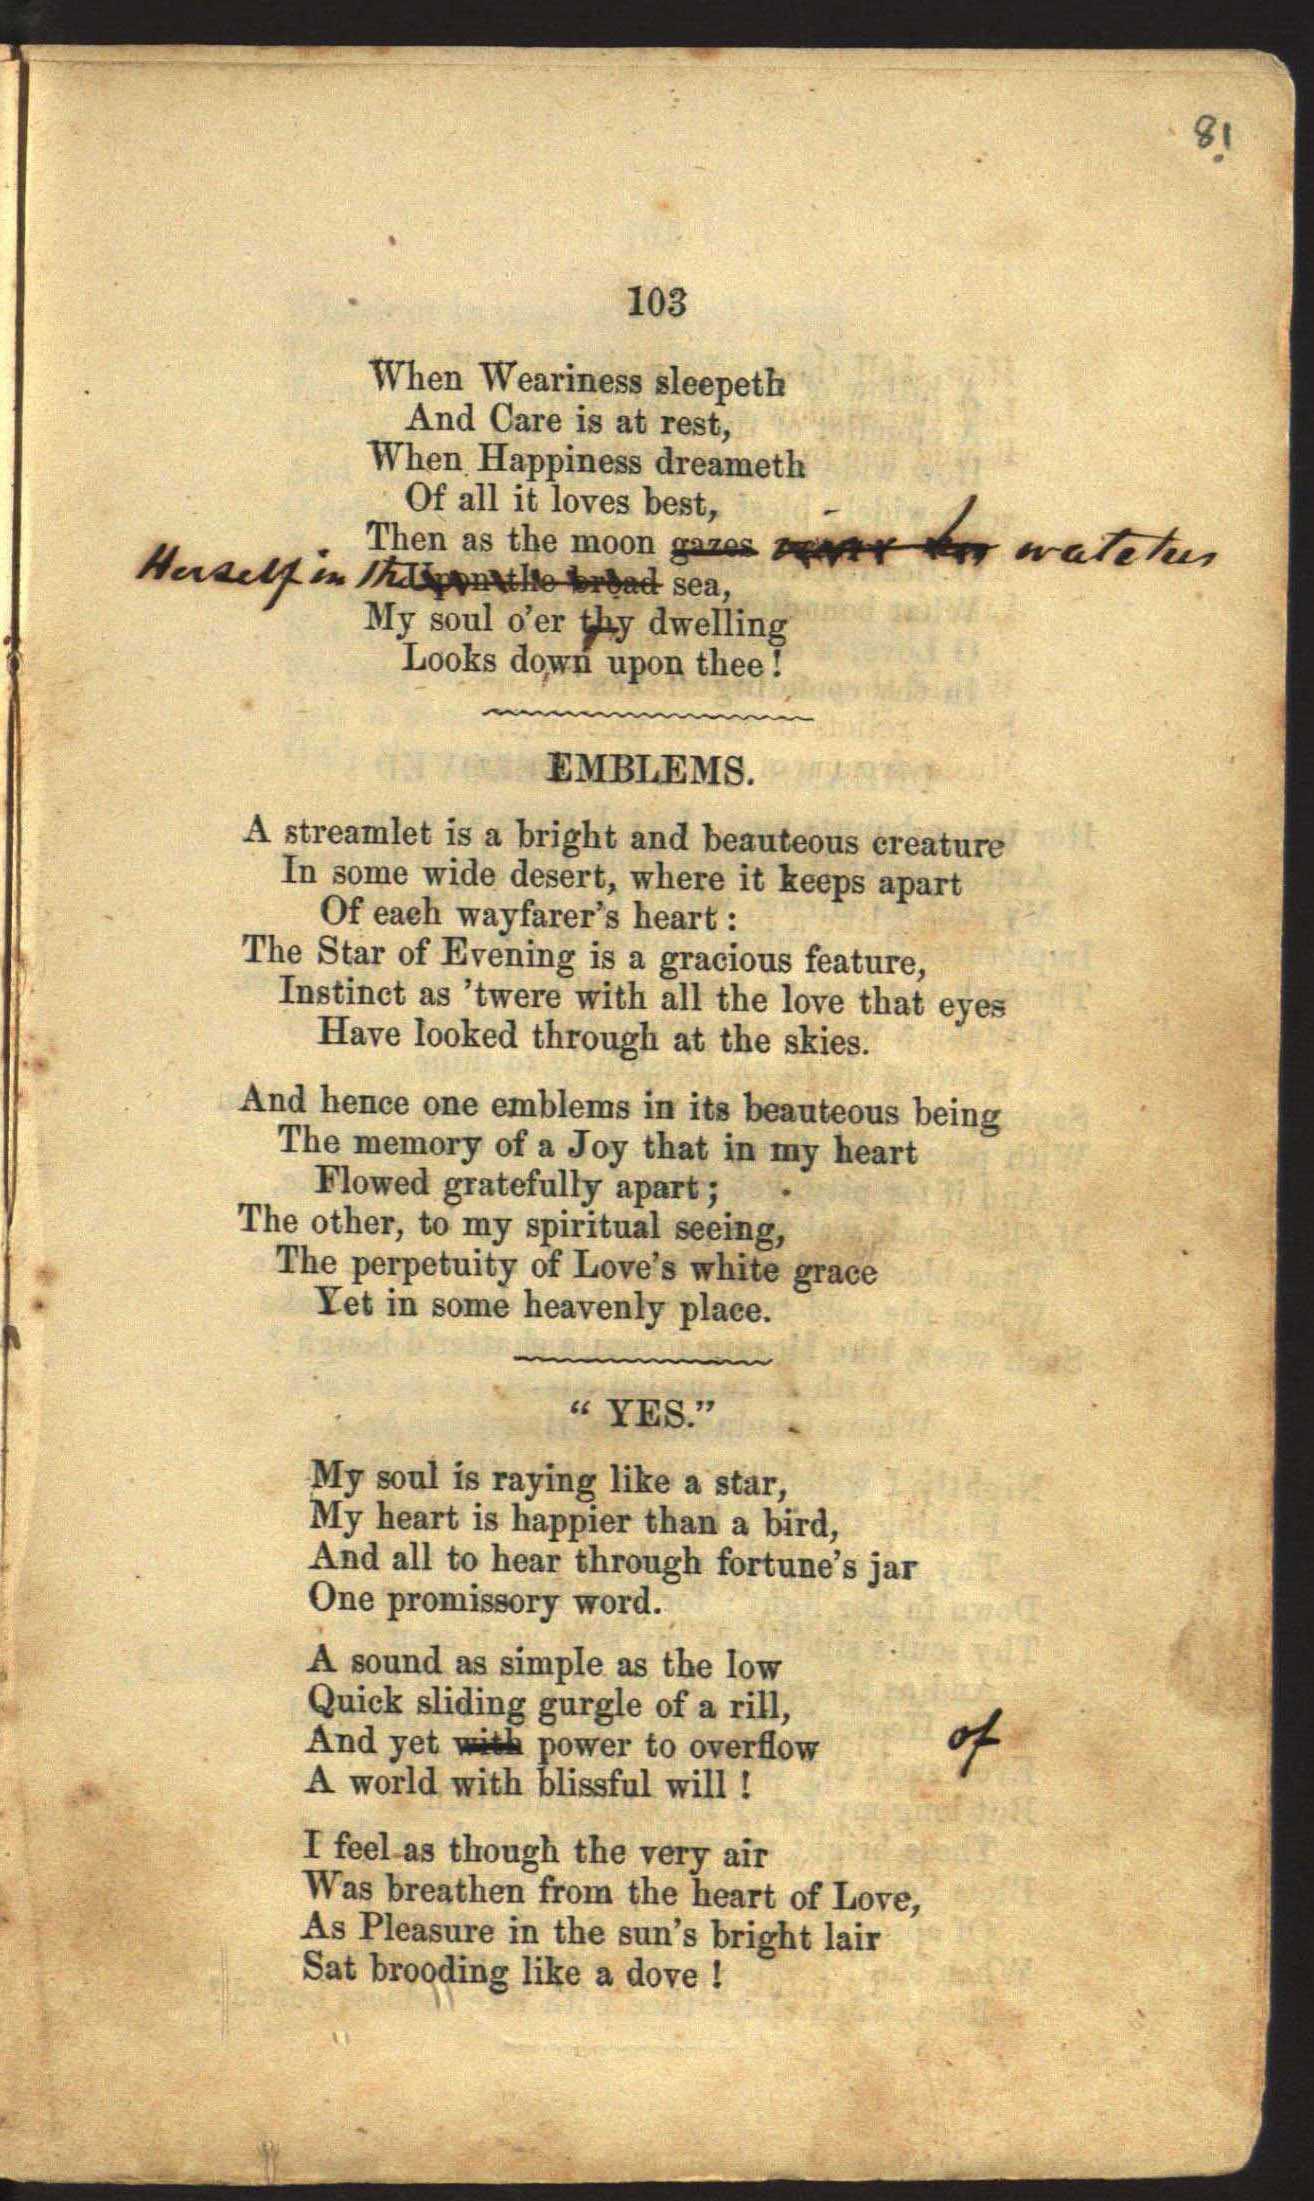 81
103
When Weariness sleepeth
And Care is at rest,
When Happiness dreameth
Of all it loves best,
Then as the moon gazes watches
Herself in the Upon the broad sea,
My soul o'er thy dwelling
Looks down upon thee!
EMBLEMS.
A streamlet is a bright and beauteous creature
In some wide desert, where it keeps apart
Of each wayfarer's heart:
The Star of Evening is a gracious feature,
Instinct as 'twere with all the love that eyes
Have looked through at the skies.
And hence one emblems in its beauteous being
The memory of a Joy that in my heart
Flowed gratefully apart;
The other, to my spiritual seeing,
The perpetuity of Love's white grace
Yet in some heavenly place.
"YES."
My soul is raying like a star,
My heart is happier than a bird,
And all to hear through fortune's jar
One promissory word.
A sound as simple as the low
Quick sliding gurgle of a rill,
And yet with power to overflow of
A world with blissful will!
I feel as though the very air
Was breathen from the heart of Love,
As Pleasure in the sun's bright lair
Sat brooding like a dove!